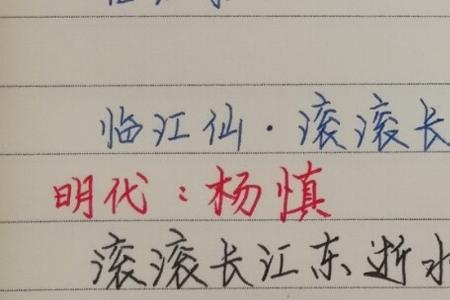 临江仙·滚滚长
明代：杨慎
滚滚长江东逝水